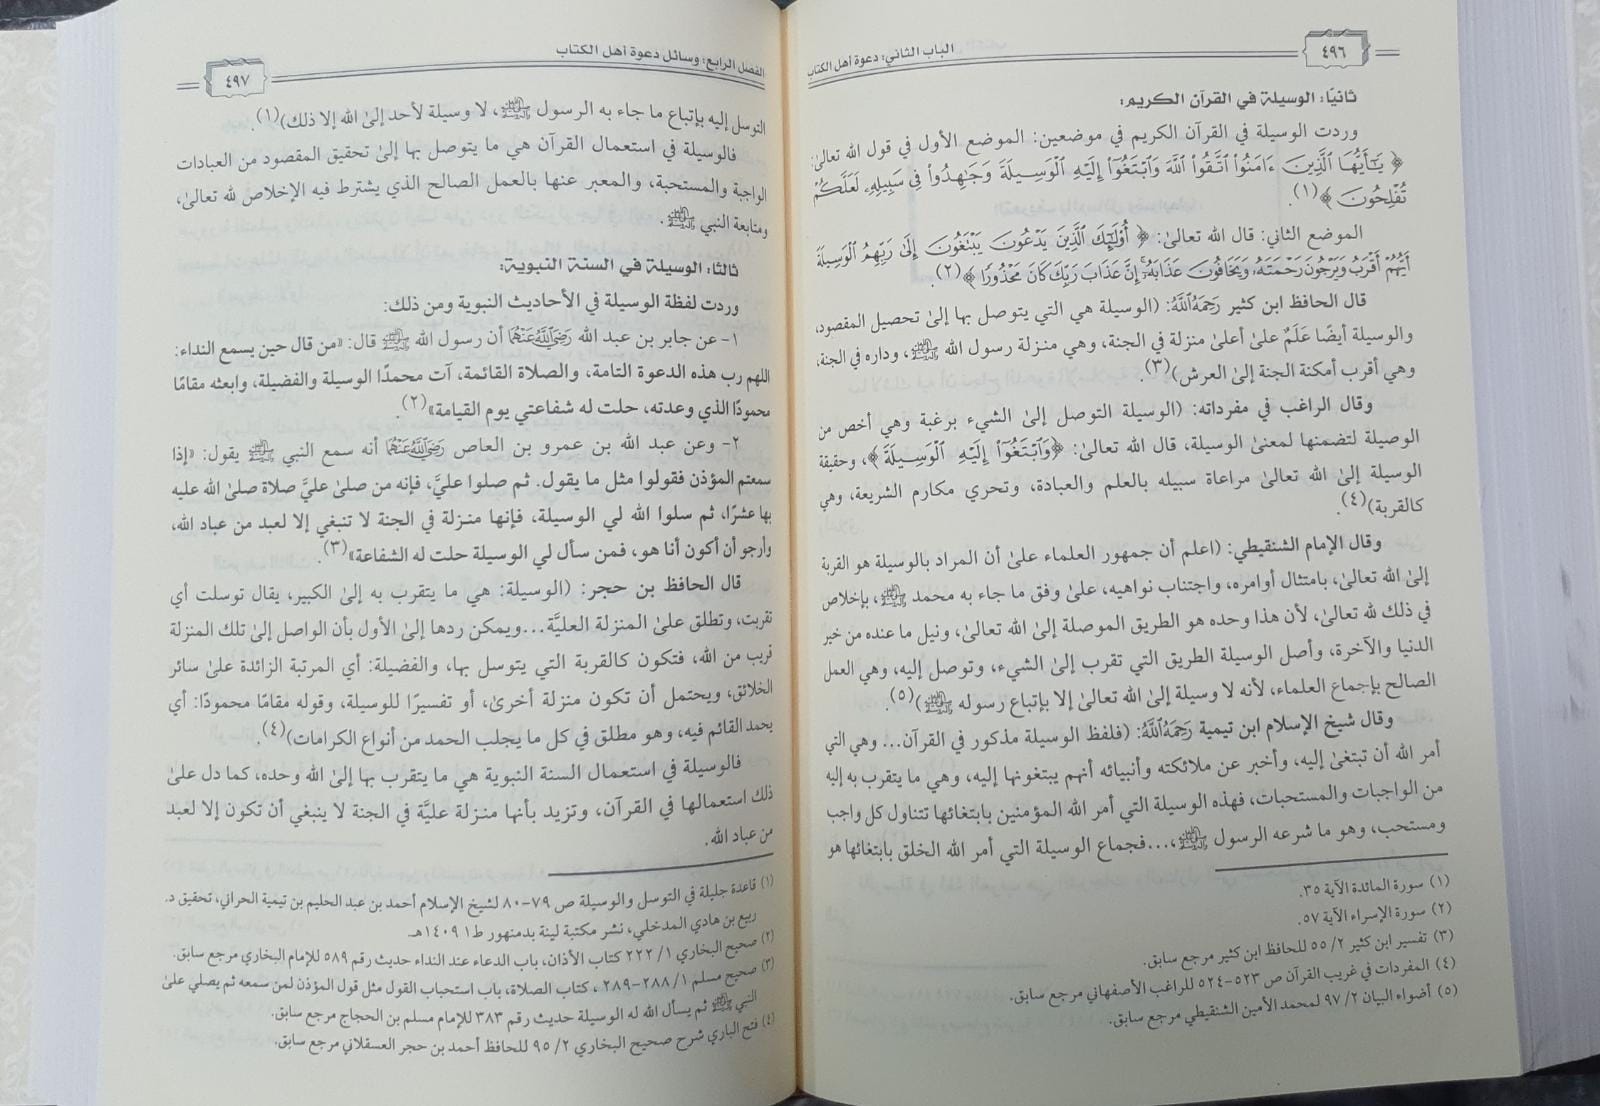 ٤٩٦
الباب الثاني: دعوة أهل الكتاب
ثانيًا: الوسيلة في القرآن الكريم:
وردت الوسيلة في القرآن الكريم في موضعين: الموضع الأول في قول الله تعالىٰ:
﴿ يَٰٓأَيُّهَا ٱلَّذِينَ ءَامَنُواْ ٱتَّقُواْ ٱللَّهَ وَٱبْتَغُوٓاْ إِلَيْهِ ٱلْوَسِيلَةَ وَجَٰهِدُواْ فِي سَبِيلِهِۦ لَعَلَّكُمْ
تُفْلِحُونَ ﴾(١).
الموضع الثاني: قال الله تعالىٰ: ﴿ أُوْلَٰٓئِكَ ٱلَّذِينَ يَدْعُونَ يَبْتَغُونَ إِلَىٰ رَبِّهِمُ ٱلْوَسِيلَةَ
أَيُّهُمْ أَقْرَبُ وَيَرْجُونَ رَحْمَتَهُۥ وَيَخَافُونَ عَذَابَهُۥٓ إِنَّ عَذَابَ رَبِّكَ كَانَ مَحْذُورًا ﴾(٢).
قال الحافظ ابن كثير رَحِمَهُ ٱللَّهُ: (الوسيلة هي التي يتوصل بها إلىٰ تحصيل المقصود،
والوسيلة أيضًا عَلَمٌ علىٰ أعلىٰ منزلة في الجنة، وهي منزلة رسول الله ﷺ، وداره في الجنة،
وهي أقرب أمكنة الجنة إلىٰ العرش)(٣).
وقال الراغب في مفرداته: (الوسيلة التوصل إلىٰ الشيء برغبة وهي أخص من
الوصيلة لتضمنها لمعنىٰ الوسيلة، قال الله تعالىٰ: ﴿وَٱبْتَغُوٓاْ إِلَيْهِ ٱلْوَسِيلَةَ﴾، وحقيقة
الوسيلة إلىٰ الله تعالىٰ مراعاة سبيله بالعلم والعبادة، وتحري مكارم الشريعة، وهي
كالقربة)(٤).
وقال الإمام الشنقيطي: (اعلم أن جمهور العلماء علىٰ أن المراد بالوسيلة هو القربة
إلىٰ الله تعالىٰ، بامتثال أوامره، واجتناب نواهيه، علىٰ وفق ما جاء به محمد ﷺ، بإخلاص
في ذلك لله تعالىٰ، لأن هذا وحده هو الطريق الموصلة إلىٰ الله تعالىٰ، ونيل ما عنده من خير
الدنيا والآخرة، وأصل الوسيلة الطريق التي تقرب إلىٰ الشيء، وتوصل إليه، وهي العمل
الصالح بإجماع العلماء، لأنه لا وسيلة إلىٰ الله تعالىٰ إلا بإتباع رسوله ﷺ)(٥).
وقال شيخ الإسلام ابن تيمية رَحِمَهُ ٱللَّهُ: (فلفظ الوسيلة مذكور في القرآن... وهي التي
أمر الله أن تبتغىٰ إليه، وأخبر عن ملائكته وأنبيائه أنهم يبتغونها إليه، وهي ما يتقرب به إليه
من الواجبات والمستحبات، فهذه الوسيلة التي أمر الله المؤمنين بابتغائها تتناول كل واجب
ومستحب، وهو ما شرعه الرسول ﷺ،...فجماع الوسيلة التي أمر الله الخلق بابتغائها هو
(١) سورة المائدة الآية ٣٥.
(٢) سورة الإسراء الآية ٥٧.
(٣) تفسير ابن كثير ٢/ ٥٥ للحافظ ابن كثير مرجع سابق.
(٤) المفردات في غريب القرآن ص ٥٢٣-٥٢٤ للراغب الأصفهاني مرجع سابق.
(٥) أضواء البيان ٢/ ٩٧ لمحمد الأمين الشنقيطي مرجع سابق.
الفصل الرابع: وسائل دعوة أهل الكتاب
٤٩٧
التوسل إليه بإتباع ما جاء به الرسول ﷺ، لا وسيلة لأحد إلىٰ الله إلا ذلك)(١).
فالوسيلة في استعمال القرآن هي ما يتوصل بها إلىٰ تحقيق المقصود من العبادات
الواجبة والمستحبة، والمعبر عنها بالعمل الصالح الذي يشترط فيه الإخلاص لله تعالىٰ،
ومتابعة النبي ﷺ.
ثالثا: الوسيلة في السنة النبوية:
وردت لفظة الوسيلة في الأحاديث النبوية ومن ذلك:
١- عن جابر بن عبد الله رَضِيَ ٱللَّهُ عَنْهُمَا أن رسول الله ﷺ قال: «من قال حين يسمع النداء:
اللهم رب هذه الدعوة التامة، والصلاة القائمة، آت محمدًا الوسيلة والفضيلة، وابعثه مقامًا
محمودًا الذي وعدته، حلت له شفاعتي يوم القيامة»(٢).
٢- وعن عبد الله بن عمرو بن العاص رَضِيَ ٱللَّهُ عَنْهُمَا أنه سمع النبي ﷺ يقول: «إذا
سمعتم المؤذن فقولوا مثل ما يقول. ثم صلوا عليَّ، فإنه من صلىٰ عليَّ صلاة صلىٰ الله عليه
بها عشرًا، ثم سلوا الله لي الوسيلة، فإنها منزلة في الجنة لا تنبغي إلا لعبد من عباد الله،
وأرجو أن أكون أنا هو، فمن سأل لي الوسيلة حلت له الشفاعة»(٣).
قال الحافظ بن حجر: (الوسيلة: هي ما يتقرب به إلىٰ الكبير، يقال توسلت أي
تقربت، وتطلق علىٰ المنزلة العليَّة...ويمكن ردها إلىٰ الأول بأن الواصل إلىٰ تلك المنزلة
قريب من الله، فتكون كالقربة التي يتوسل بها، والفضيلة: أي المرتبة الزائدة علىٰ سائر
الخلائق، ويحتمل أن تكون منزلة أخرىٰ، أو تفسيرًا للوسيلة، وقوله مقامًا محمودًا: أي
يحمد القائم فيه، وهو مطلق في كل ما يجلب الحمد من أنواع الكرامات)(٤).
فالوسيلة في استعمال السنة النبوية هي ما يتقرب بها إلىٰ الله وحده، كما دل علىٰ
ذلك استعمالها في القرآن، وتزيد بأنها منزلة عليَّة في الجنة لا ينبغي أن تكون إلا لعبد
من عباد الله.
(١) قاعدة جليلة في التوسل والوسيلة ص ٧٩-٨٠ لشيخ الإسلام أحمد بن عبد الحليم بن تيمية الحراني، تحقيق د.
ربيع بن هادي المدخلي، نشر مكتبة لينة بدمنهور ط١ ١٤٠٩هـ.
(٢) صحيح البخاري ١/ ٢٢٢ كتاب الأذان، باب الدعاء عند النداء حديث رقم ٥٨٩ للإمام البخاري مرجع سابق.
(٣) صحيح مسلم ١/ ٢٨٨-٢٨٩ ، كتاب الصلاة، باب استحباب القول مثل قول المؤذن لمن سمعه ثم يصلي علىٰ
النبي ﷺ ثم يسأل الله له الوسيلة حديث رقم ٣٨٣ للإمام مسلم بن الحجاج مرجع سابق.
(٤) فتح الباري شرح صحيح البخاري ٢/ ٩٥ للحافظ أحمد بن حجر العسقلاني مرجع سابق.